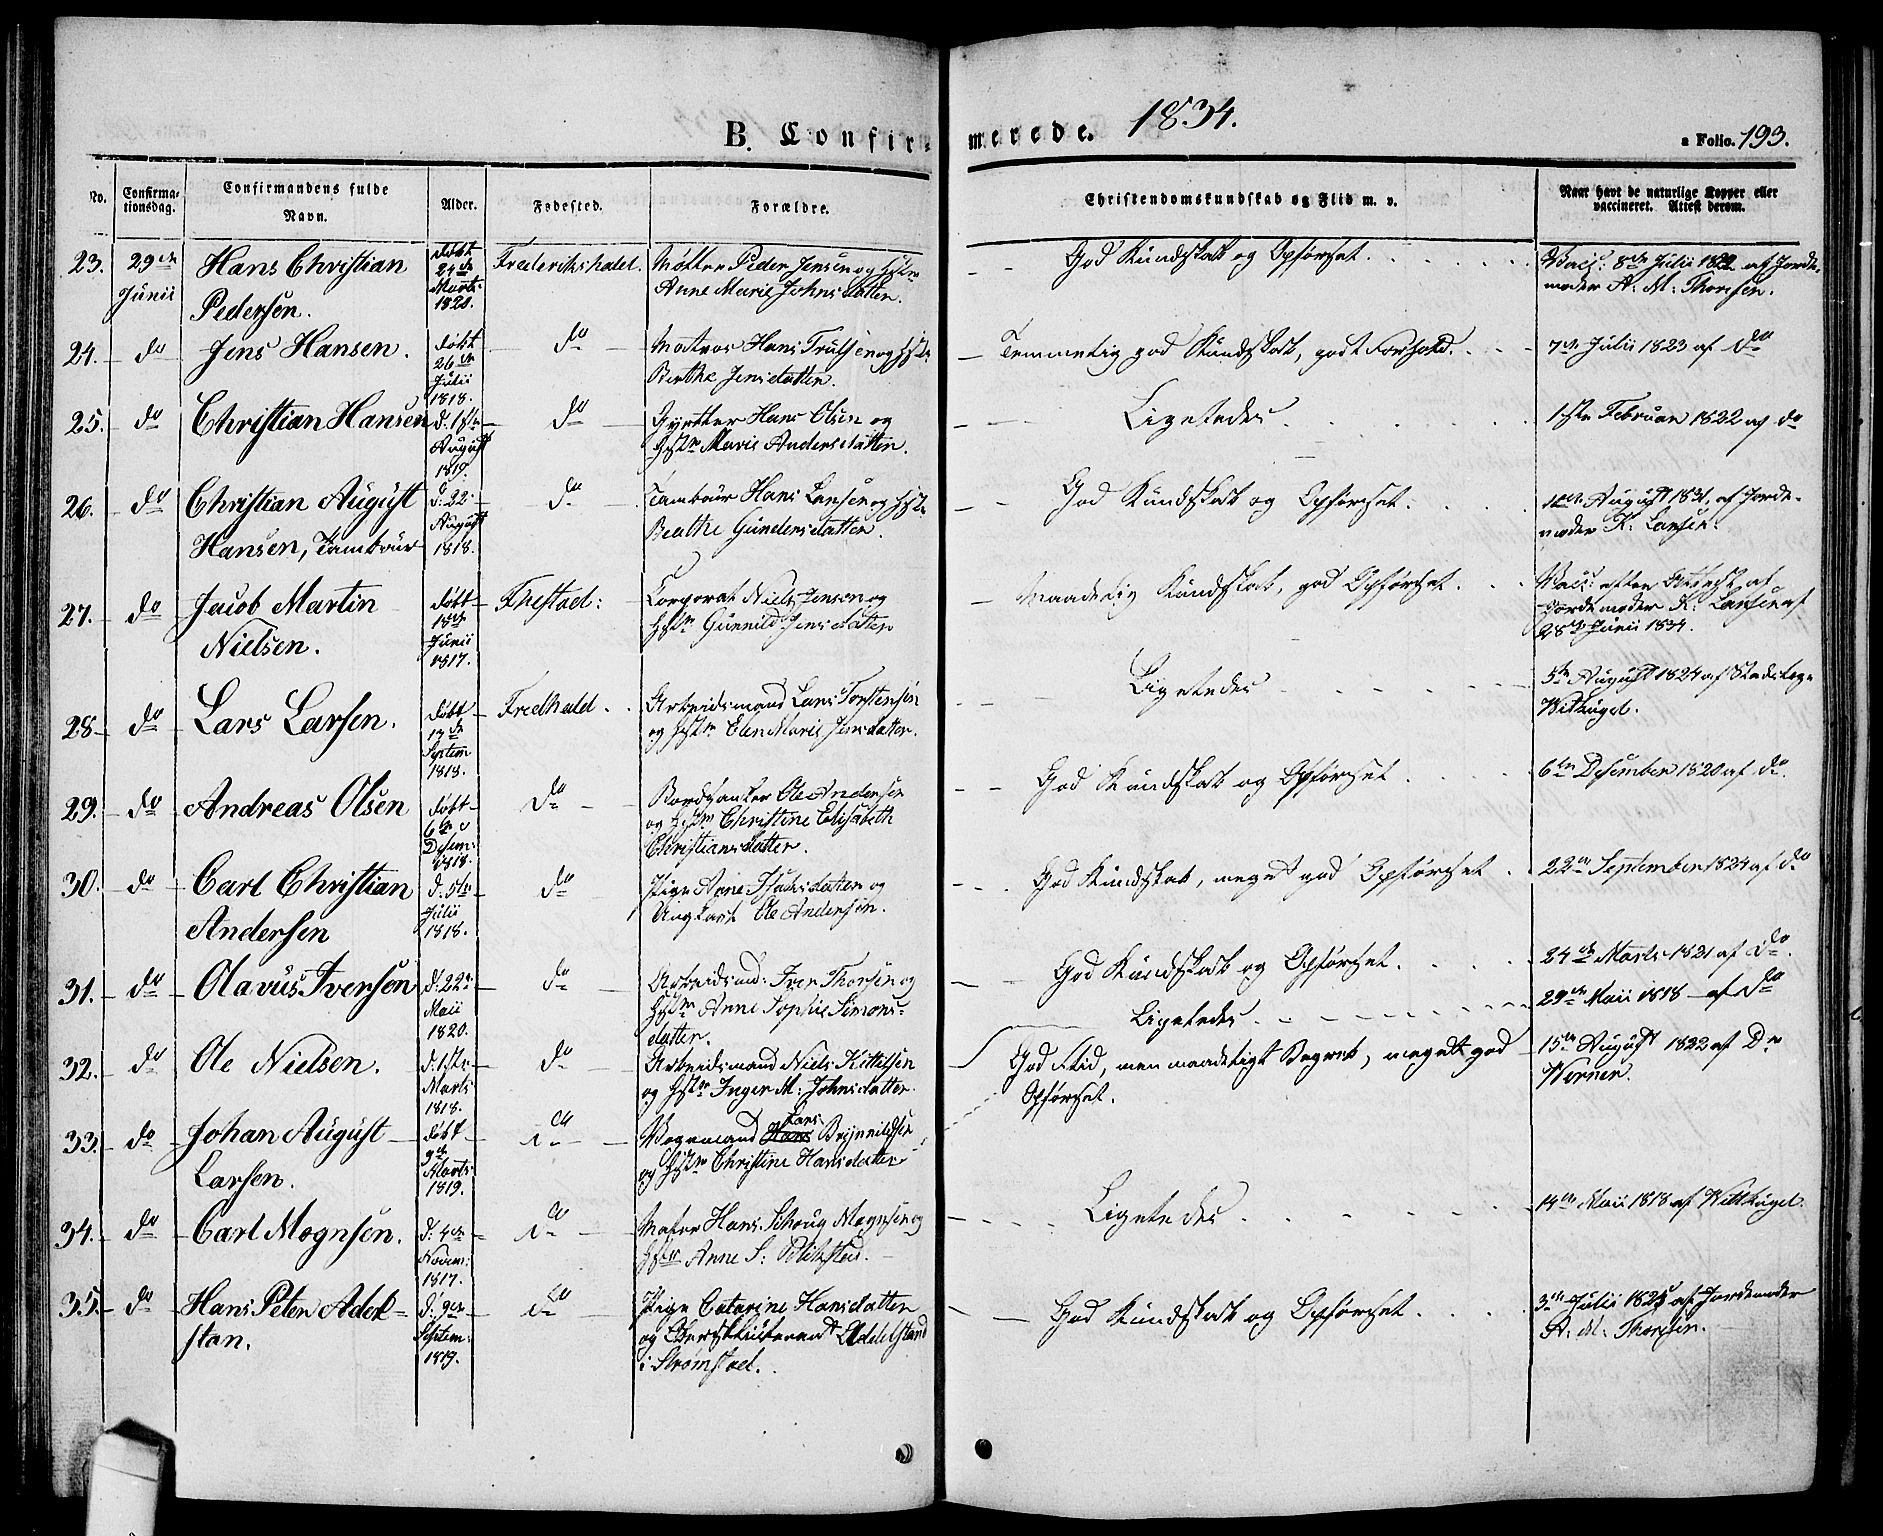 B. Confir-
merede. 1834.
a Folio. 193.
No.
Confirma-
tionsdag.
Confirmandens fulde
Navn.
Alder.
Fødested.
Forældre.
Christendomskundskab og Flid m. v.
Naar havt de naturlige Kopper eller
vaccineret. Attest derom.
23. 29de Hans Christian døbt Frederikshald. Peder Jensen og Hstr
Junii Pedersen. 24de Anne Marie Johnsdatter.
Marts
1820.
God Kundskab og Opførsel. Vacc: 8de Julii 1822 af Jorde-
moder A. M. Thoresen.
24. do Jens Hansen. døbt do Matros Hans Trulsen og Hstr
26de Berthe Jensdatter.
Julii
1818.
Temmelig god Kundskab, godt Forhold. 7de Julii 1823 af do
25. do Christian Hansen d. 1ste do Hans Olsen og
August Hstr Marie Andersdatter.
1819.
Ligeledes. 1ste Februar 1822 af do
26. do Christian August d. 22 do Tambour Hans Larsen og Hstr
Hansen, Tambour August Beathe Gundersdatter.
1818.
God Kundskab og Opførsel. August 1831 af Jorde-
moder K. Larsen.
27. do Jacob Martin døbt Thistad: Corporal Niels Jensen og
Nielsen. 18de Hstr Gunnild Jensdatter
Junii
1817.
Maadelig Kundskab, god Opførsel. Vacc: efter Attest af
Jordemoder K. Larsen af
28de Junii 1834.
28. do Lars Larsen. døbt Fredhald. Arbeidsmand Lars Torstensen
13de og Hstr Elen Marie Jensdatter.
Septem
1818.
Ligeledes 5te August 1824 af Stadslæge
Wilkügel.
29. do Andreas Olsen døbt do Ole Andersen
6te og Hstr Christine Elisabeth
Desem: Christiansdatter.
1818.
God Kundskab og Opførsel 6te Desember 1820 af do.
30. do Carl Christian d. 5te do Pige Anne Isachsdatter og
Andersen Julii Ungkarl Ole Andersen.
1818.
God Kundskab, meget god Opførsel 22de September 1824 af do
31. do Olavus Iversen d. 22de do Arbeidsmd: Iver Thorsen og
Maii Hstr Anne Sophie Simons-
1820. datter.
God Kundskab og Opførsel. 24de Marts 1821 af do.
32. do Ole Nielsen. d. 1ste do Arbeidsmand Niels Kittelsen
Marts og Hstr Inger M. Johnsdatter.
1818.
Ligeledes 29de Maii 1818 af do
33. do Johan August døbt do Vognmand Lars Brynnildsen
Larsen. 9de og Hstr Christine Hansdatter
Marts
1819.
God Flid, men maadeligt Begreb, meget god
Opførsel.
15de August 1822 af Dr
Werner.
34. do Carl Mognsen. d. 4de do Maler Hans Schoug Mognsen og
Novem: Hstr Anne S:
1817.
Ligeledes 14de Maii 1818 af Wilkügel.
35. do Hans Peter Adel- d. 9de do Pige Catarine Hansdatter
stan. Septem: og Oberstlieutenant Addelstand
1819. i Strømstad.
God Kundskab og Opførsel. 3die Julii 1825 af Jordemoder
A. M. Thoresen.